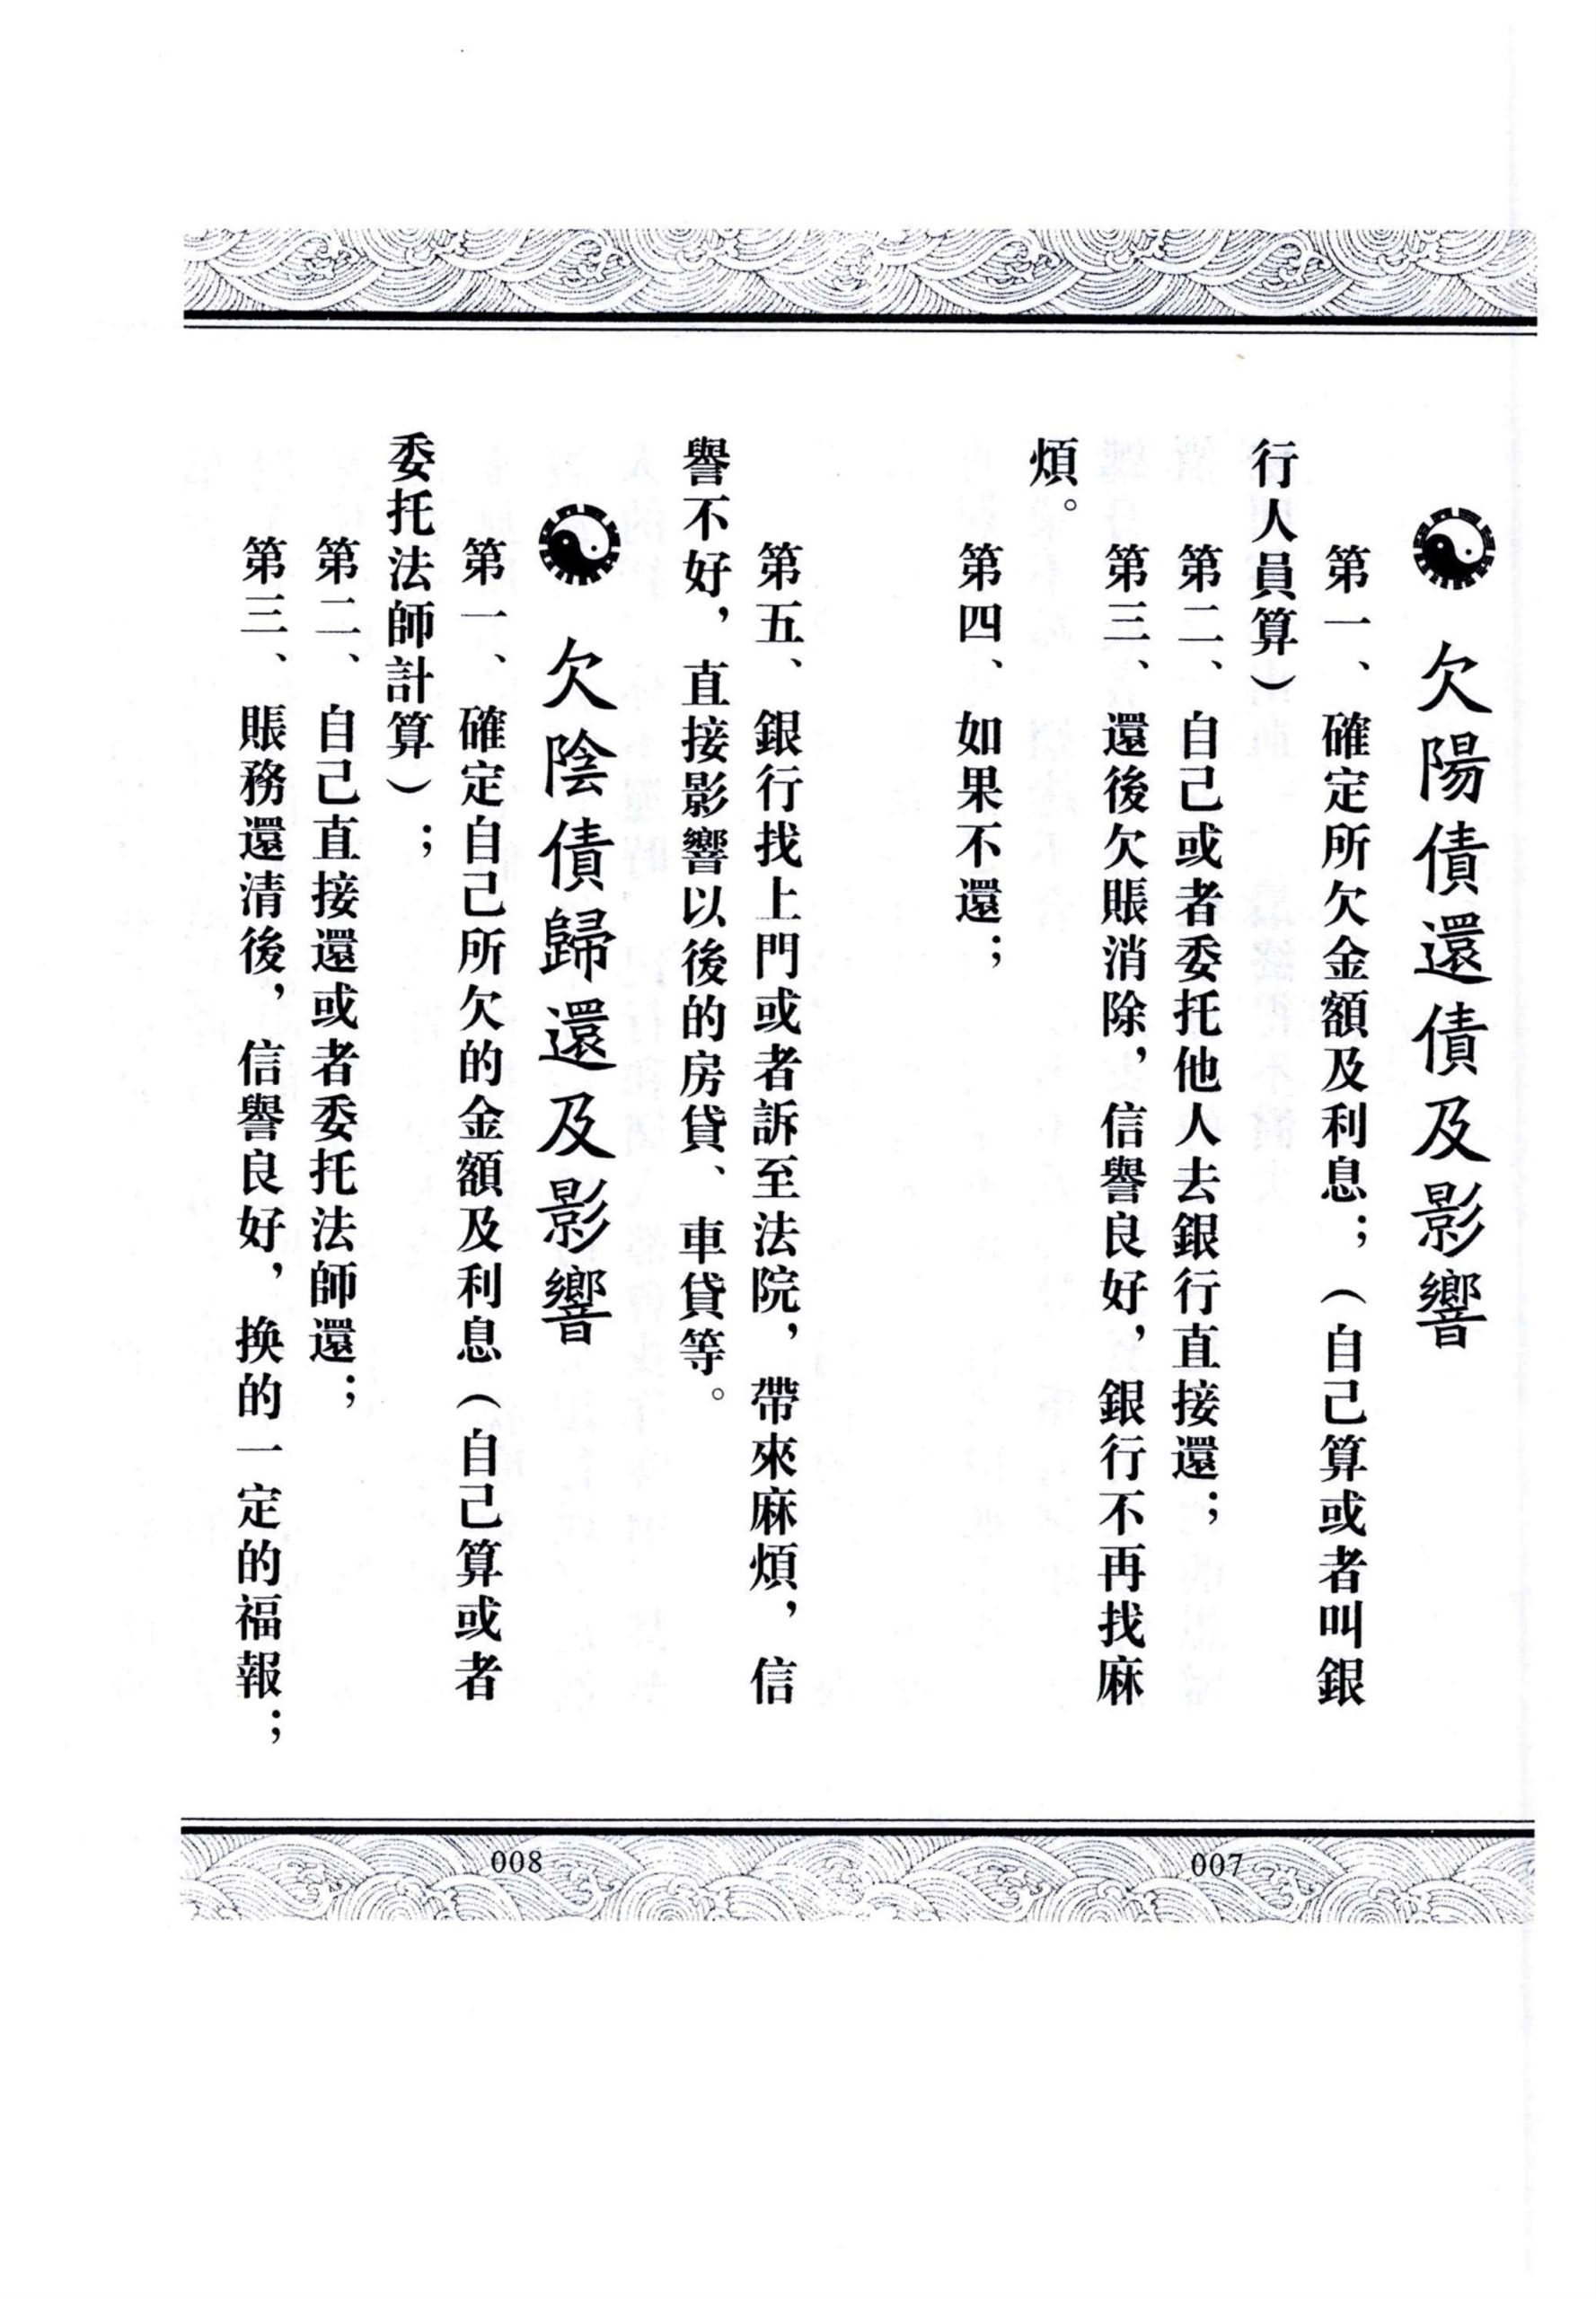 欠陽債還債及影響
第一、確定所欠金額及利息；（自己算或者叫銀
行人員算）
第二、自己或者委托他人去銀行直接還；
第三、還後欠賬消除，信譽良好，銀行不再找麻
煩。
第四、如果不還；
007
第五、銀行找上門或者訴至法院，帶來麻煩，信
譽不好，直接影響以後的房貸、車貸等。
欠陰債歸還及影響
第一、確定自己所欠的金額及利息（自己算或者
委托法師計算）；
第二、自己直接還或者委托法師還；
第三、賬務還清後，信譽良好，换的一定的福報；
008